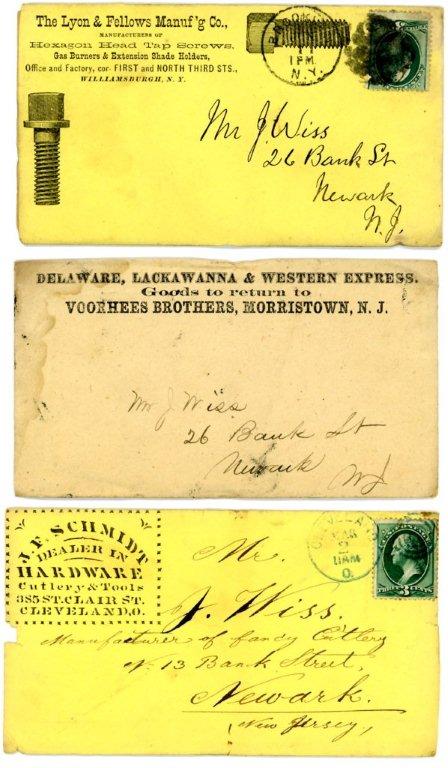 The Lyon & Fellows Manuf'g Co.,
MANUFACTURERS OF
Hexagon Head Tap Screws,
Gas Burners & Extension Shade Holders,
Office and Factory, cor. FIRST and NORTH THIRD STS.,
WILLIAMSBURGH, N. Y.
1 PM
N.Y.
Mr J Wiss
26 Bank St
Newark
N.J.
DELAWARE, LACKAWANNA & WESTERN EXPRESS.
Goods to return to
VOORHEES BROTHERS, MORRISTOWN, N. J.
Mr J Wiss
26 Bank St
Newark NJ
J. F. SCHMIDT
DEALER IN
HARDWARE
Cutlery & Tools
385 ST. CLAIR ST.
CLEVELAND, O.
MAR
11 AM
O.
THREE 3 CENTS
Mr.
J. Wiss.
Manufacturer of fancy Cutlery
N. 13 Bank Street,
Newark.
New Jersey,